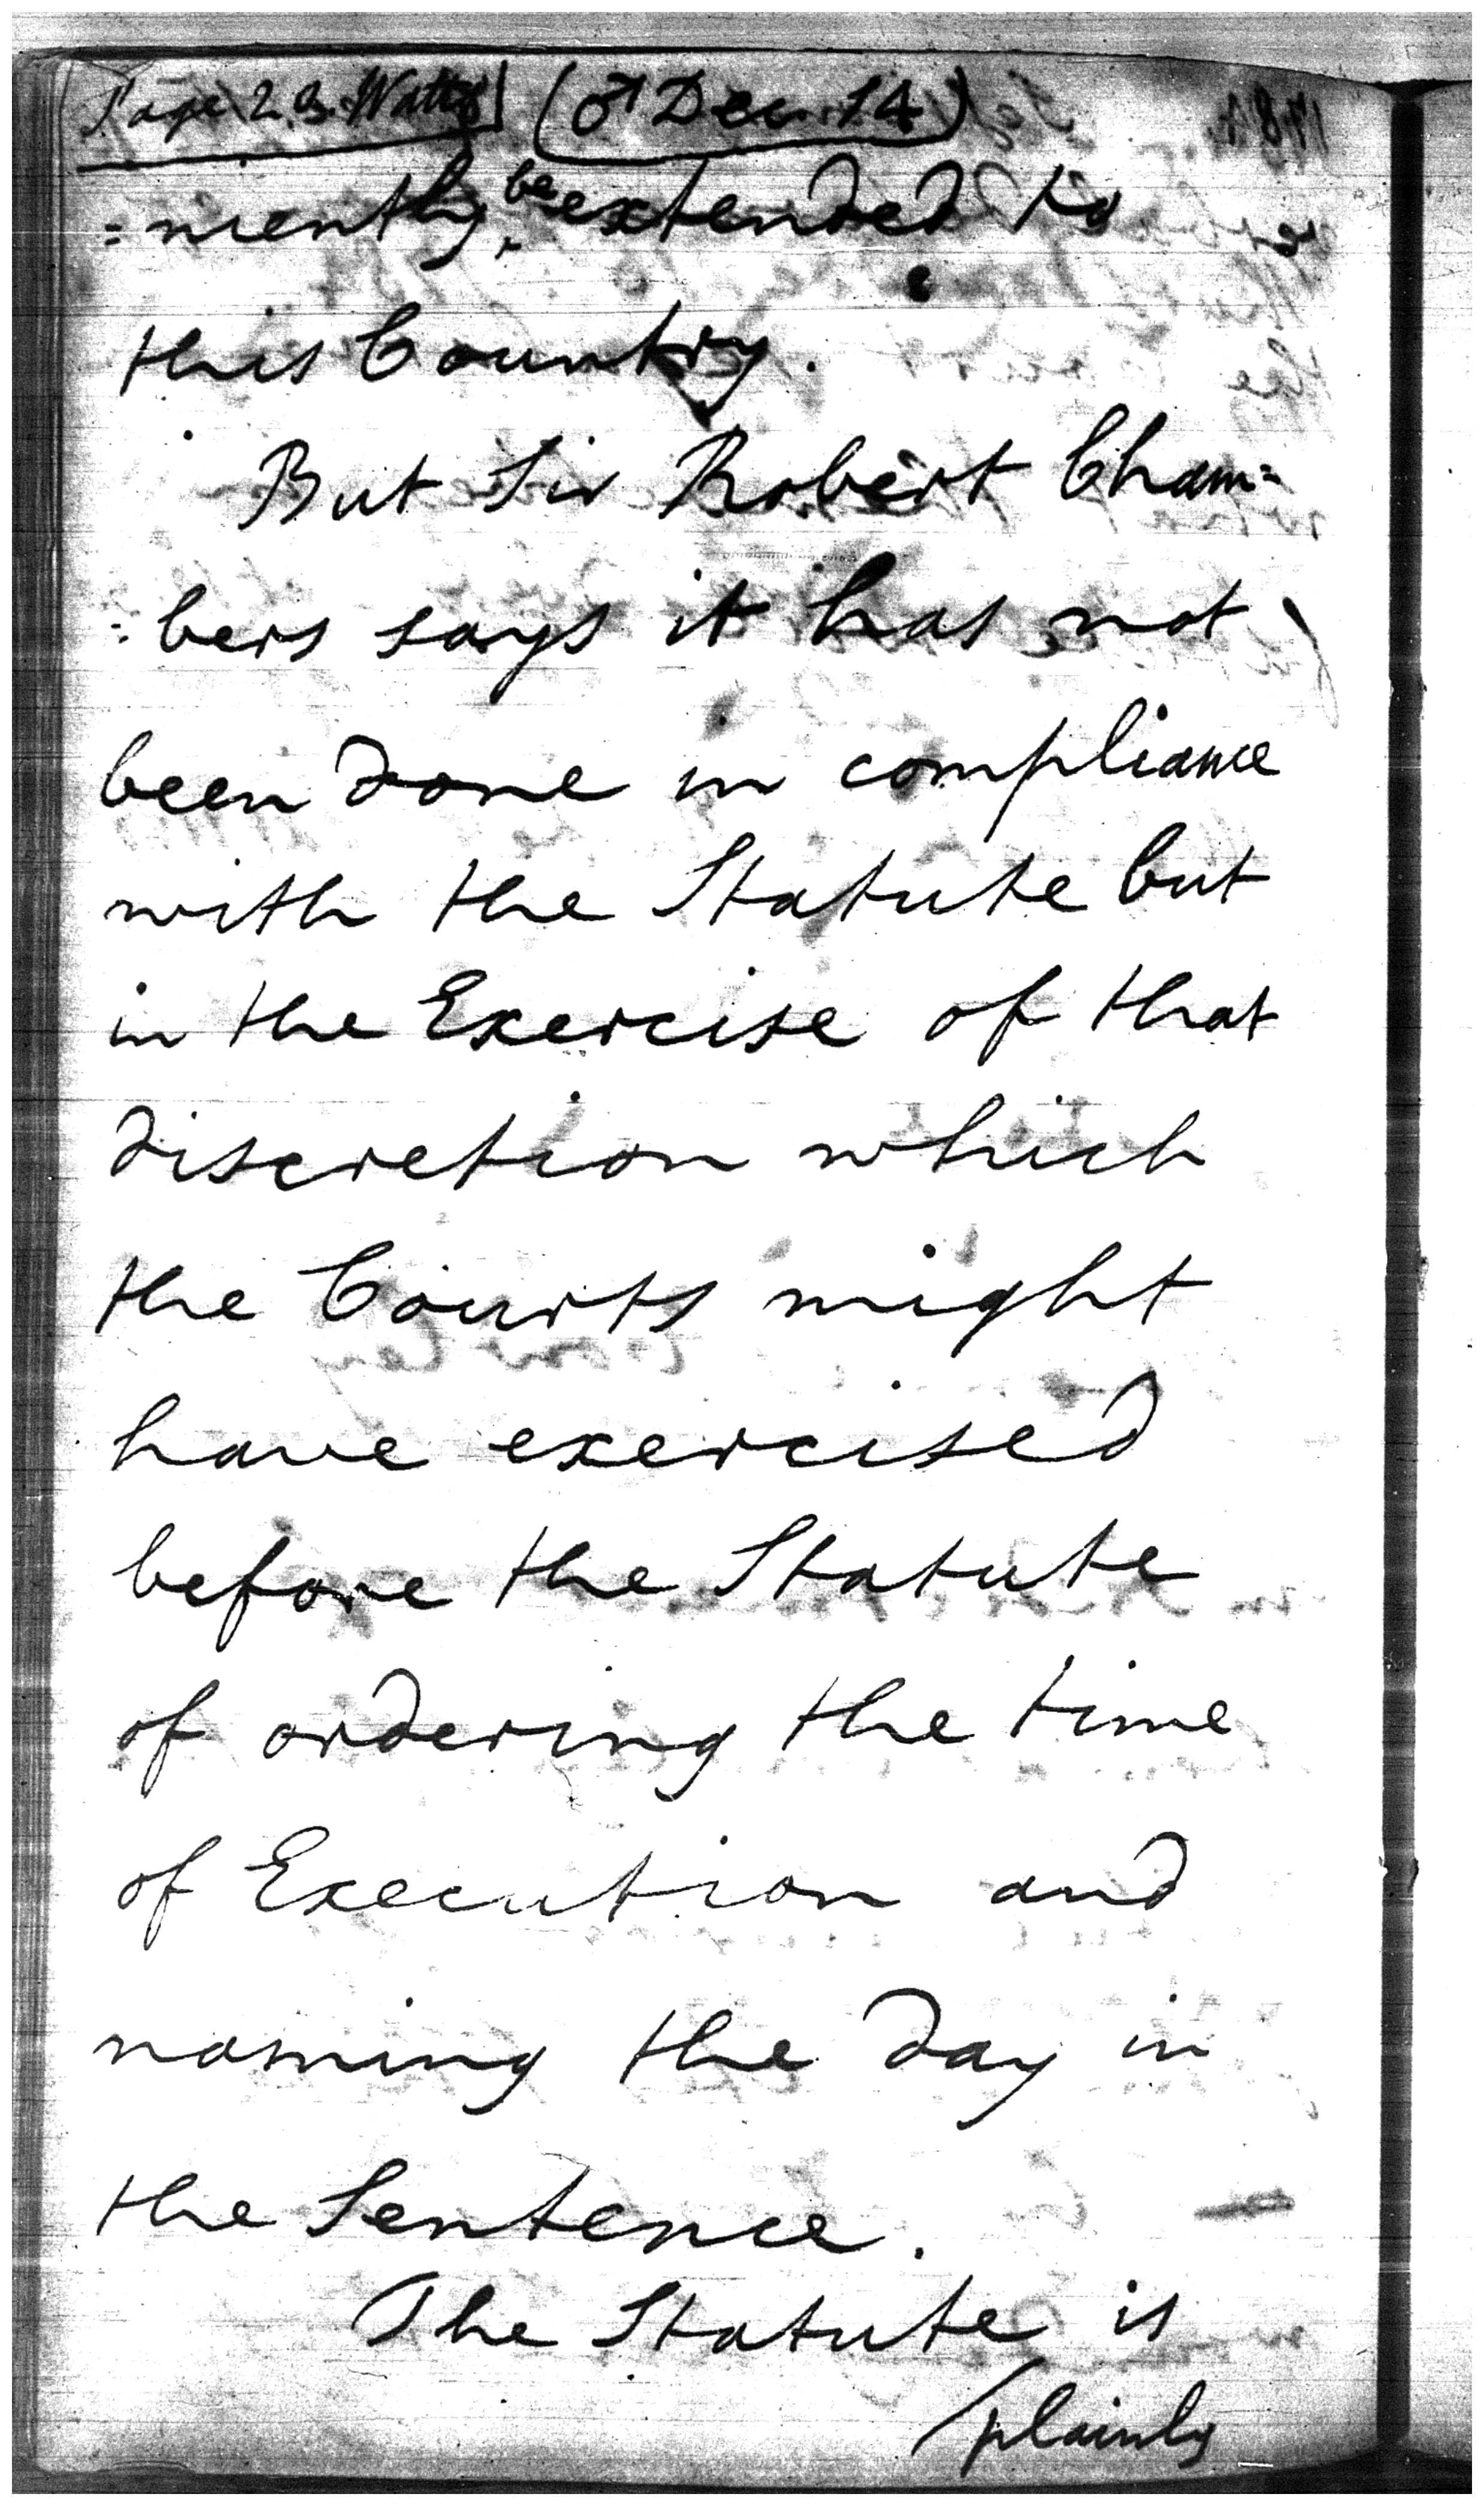 Page 2 B. Watts (♂ Dec. 14)
=niently, be extended to
this Country.
But Sir Robert Cham=
=bers says it has not
been done in compliance
with the Statute but
in the Exercise of that
discretion which
the Courts might
have exercised
before the Statute
of ordering the time
of Execution and
naming the day in
the Sentence.
The Statute is
/plainly